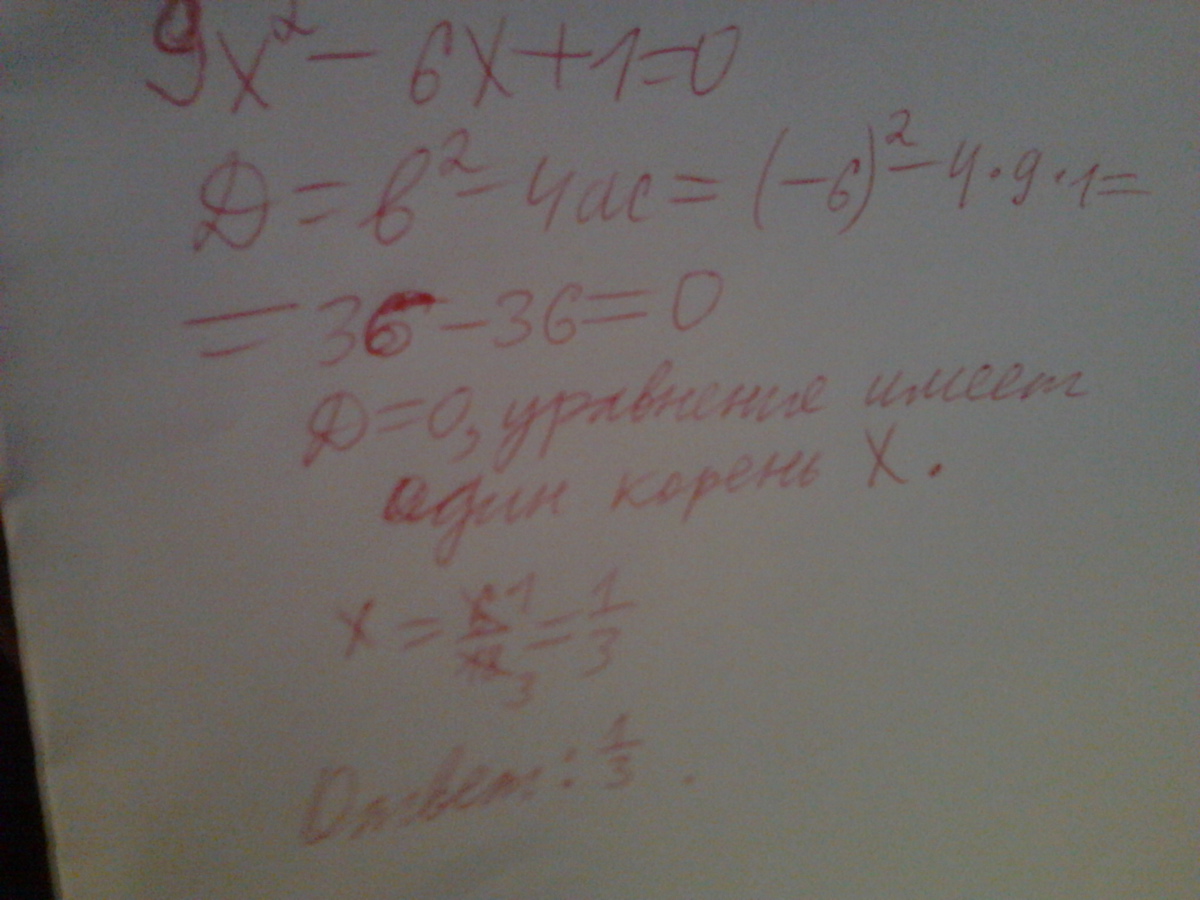 9x² - 6x + 1 = 0
D = b² - 4ac = (-6)² - 4·9·1 =
= 36 - 36 = 0
D = 0, уравнение имеет
один корень x.
x = 6/18 1/3 = 1/3
Ответ: 1/3.